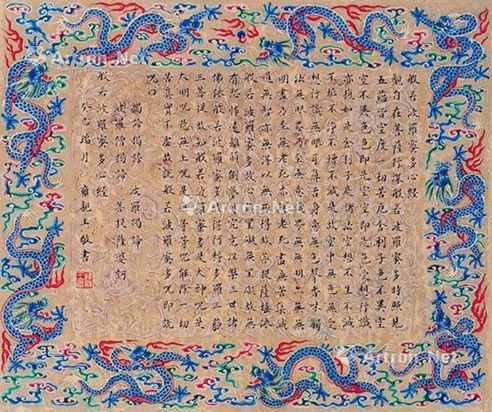 般若波羅蜜多心經
觀自在菩薩行深般若波羅蜜多時照見
五蘊皆空度一切苦厄舍利子色不異空
空不異色色即是空空即是色受想行識
亦復如是舍利子是諸法空相不生不滅
不垢不淨不增不減是故空中無色無受
想行識無眼耳鼻舌身意無色聲香味觸
法無眼界乃至無意識界無無明亦無無
明盡乃至無老死亦無老死盡無苦集滅
道無智亦無得以無所得故菩提薩埵依
般若波羅蜜多故心無罣礙無罣礙故無
有恐怖遠離顛倒夢想究竟涅槃三世諸
佛依般若波羅蜜多故得阿耨多羅三藐
三菩提故知般若波羅蜜多是大神咒是
大明咒是無上咒是無等等咒能除一切
苦真實不虛故說般若波羅蜜多咒即說
咒曰
揭諦揭諦 波羅揭諦
波羅僧揭諦 菩提薩婆訶
般若波羅蜜多心經
月 雍親王敬書
Artron.Net
Artron.Net
Artron.Net
Artron.Net
Artron.Net